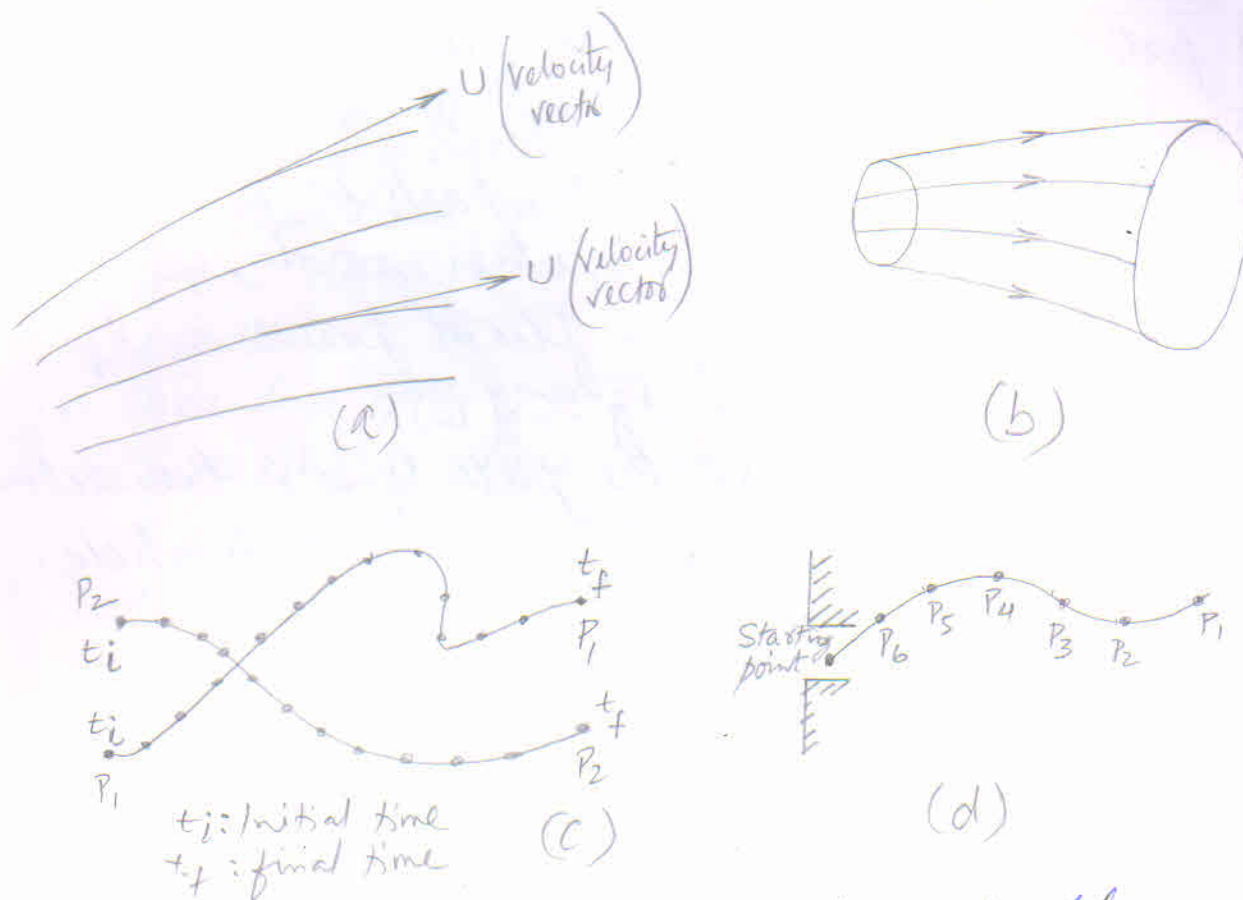 U (velocity
vector)
U (velocity
vector)
(a)
(b)
P2
ti
ti
P1
tf
P1
tf
P2
ti: Initial time
tf: final time
(c)
Starting
point
P6
P5
P4
P3
P2
P1
(d)